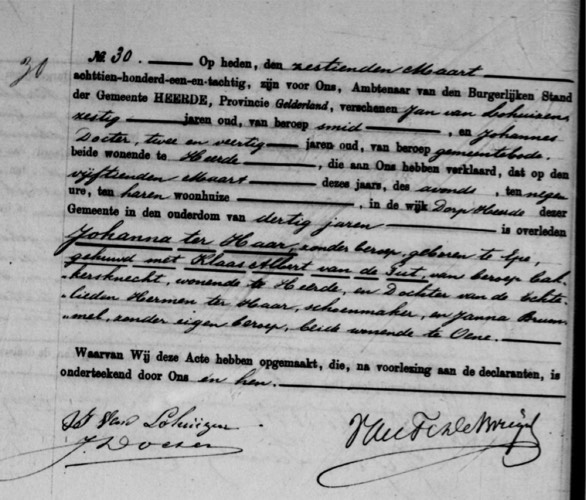 30
№. 30. Op heden, den zestienden Maart
achttien-honderd-een-en-tachtig, zijn voor Ons, Ambtenaar van den Burgerlijken Stand
der Gemeente HEERDE, Provincie Gelderland, verschenen Jan van Lohuizen
zestig jaren oud, van beroep smid, en Johannes
Docter, twee en veertig jaren oud, van beroep gemeentebode,
beide wonende te Heerde, die aan Ons hebben verklaard, dat op den
vijftienden Maart dezes jaars, des avonds, ten negen
ure, ten haren woonhuize, in de wijk Dorp Heerde dezer
Gemeente in den ouderdom van dertig jaren is overleden
Johanna ter Haar, zonder beroep, geboren te Epe,
gehuwd met Klaas Albert van de Put, van beroep bak-
kersknecht, wonende te Heerde, en Dochter van de Echte-
lieden Hermen ter Haar, schoenmaker, en Janna Brum-
mel, zonder eigen beroep, beide wonende te Oene.
Waarvan Wij deze Acte hebben opgemaakt, die, na voorlezing aan de declaranten, is
onderteekend door Ons en hen.
van Lohuizen
J. Docter